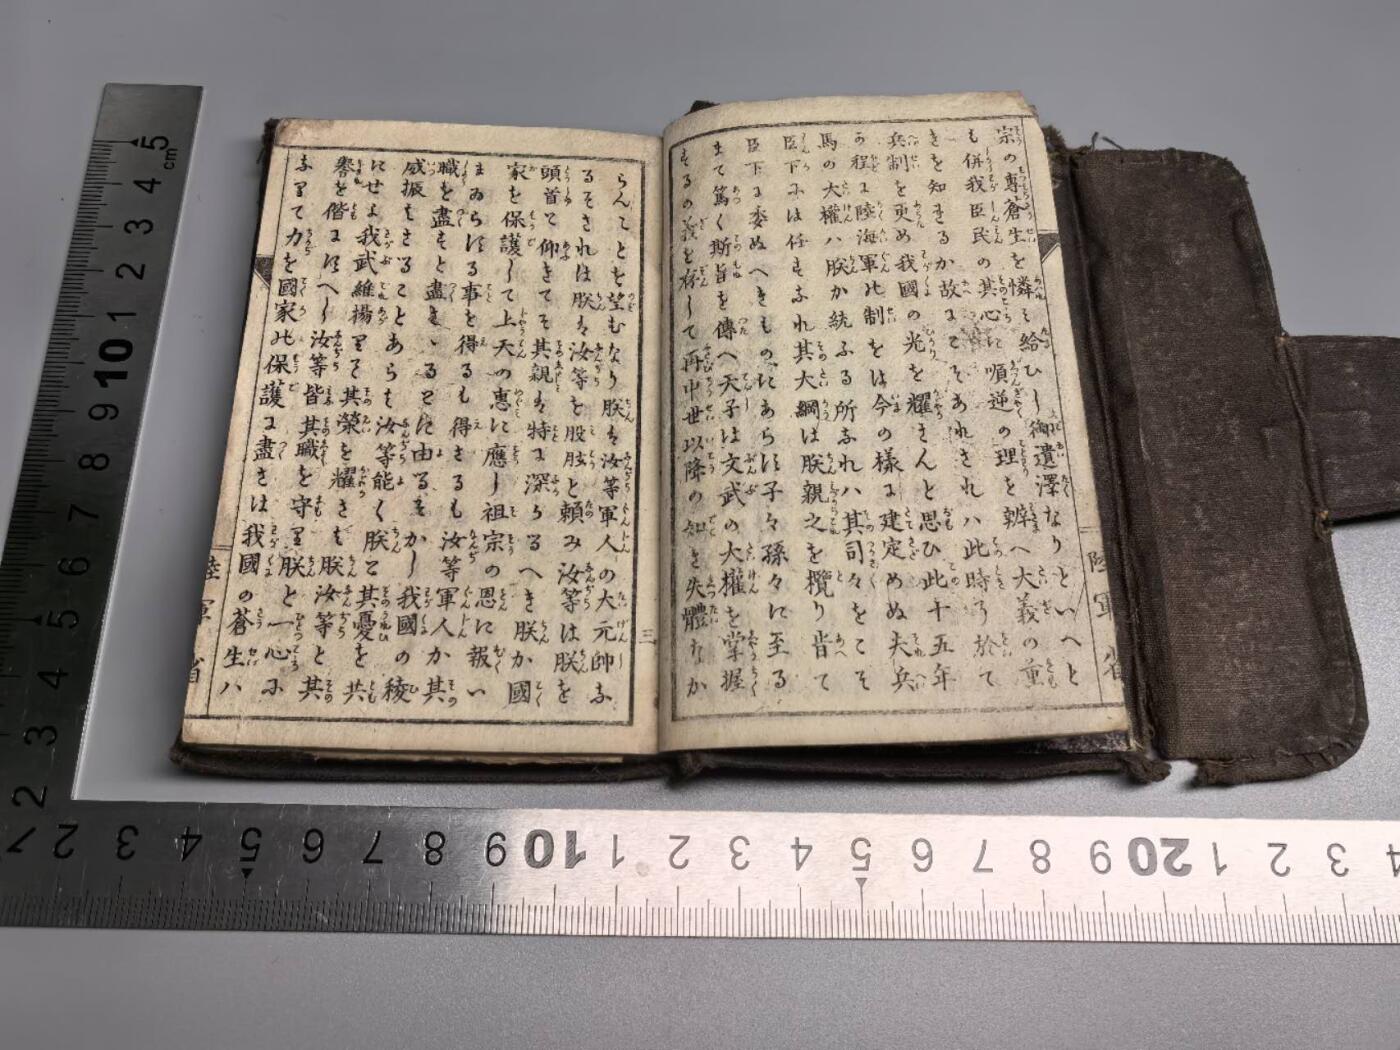 宗の專蒼生を憐み給ひし御遺澤なりといへと
も併我臣民の其心に順逆の理を辨へ大義の重
きを知れるか故にこそあれされハ此時に於て
兵制を更め我國の光を耀さんと思ひ此十五年
か程に陸海軍の制をは今の様に建定めぬ夫兵
馬の大權ハ朕か統ふる所なれハ其司々をこそ
臣下には任すなれ其大綱は朕親之を攬り肯て
臣下に委ぬへきものにあらす子々孫々に至る
まて篤く斯旨を傳へ天子は文武の大權を掌握
するの義を存して再中世以降の如き失體なか
陸軍省
三
らんことを望むなり朕は汝等軍人の大元帥な
るそされは朕は汝等を股肱と頼み汝等は朕を
頭首と仰きてそ其親は特に深かるへき朕か國
家を保護して上天の惠に應し祖宗の恩に報い
まゐらする事を得るも得さるも汝等軍人か其
職を盡すと盡さゝるとに由るそかし我國の稜
威振はさることあらは汝等能く朕と其憂を共
にせよ我武維揚りて其榮を耀さは朕汝等と其
譽を偕にすへし汝等皆其職を守り朕と一心に
なりて力を國家の保護に盡さは我國の蒼生ハ
陸軍省
cm
5 4 3 2 1 10 9 8 7 6 5 4 3 2
2 3 4 5 6 7 8 9 10 1 2 3 4 5 6 7 8 9 20 1 2 3 4